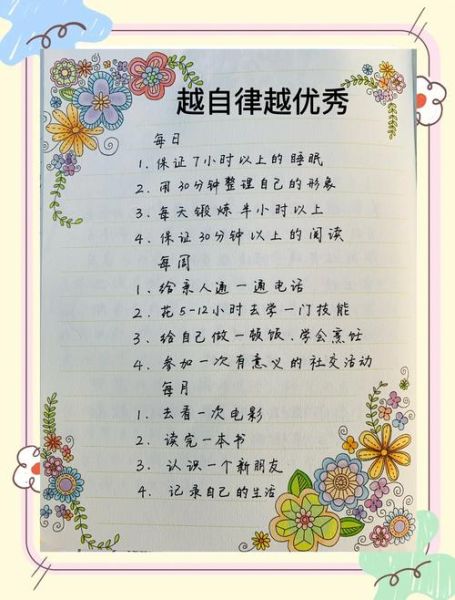 越自律越优秀
每日
1. 保证7小时以上的睡眠
2. 用30分钟整理自己的形象
3. 每天锻炼半小时以上
4. 保证30分钟以上的阅读
每周
1. 给亲人通一通电话
2. 花5-12小时去学一门技能
3. 给自己做一顿饭、学会烹饪
4. 参加一次有意义的社交活动
每月
1. 去看一次电影
2. 读完一本书
3. 认识一个新朋友
4. 记录自己的生活